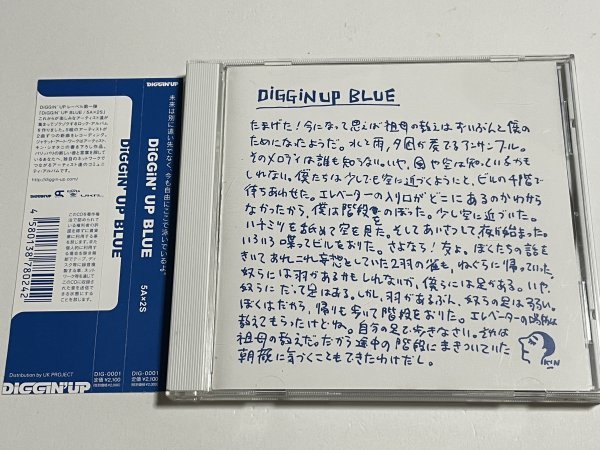 DiGGiN'UP
DiGGiN' UPレーベル第一弾
「DiGGiN' UP BLUE / 5A×2S」
http://diggin-up.com/
4 580138 780242
Distribution by UK PROJECT
DiGGiN'UP
DiGGiN' UP BLUE
DIG-0001
定価 ¥2,100
DiGGiN' UP BLUE
5A×2S
DIG-0001
定価 ¥2,100
未来は別に遠い先でなく、今も自由にここで泳いでいるよ。
DiGGiN UP BLUE
たまげた！今になって思えば祖母の教えはずいぶんと僕の
ためになったようだ。水と雨、夕囙が奏でるアンサンブル。
そのメロディは誰も知らない。いや、風や空は知っているかも
しれない。僕たちは少しでも空に近づくようにと、ビルの4階で
待ちあわせた。エレベーターの入り口がどこにあるのかわから
なかったから、僕は階段をのぼった。少し空に近づいた。
空を見た。そしてあいさつして夜が始まった。
いろいろ喋ってビルをおりた。さよなら！友よ。ぼくたちの話を
きいてあれこれ妄想としていた2羽の雀も、ねぐらに帰っていった。
奴らには羽があるかもしれないが、僕らには足がある。いや、
奴らにだって足はある。しかし、羽があるぶん、奴らの足は弱い。
ぼくはだから、帰りも歩いて階段をおりた。エレベーターの場所は
教えてもらったけどね。自分の足で歩きなさい。それは
祖母の教えだ。だから途中の階段にまきついていた
朝顔に気づくこともできたわけだし。
KIN